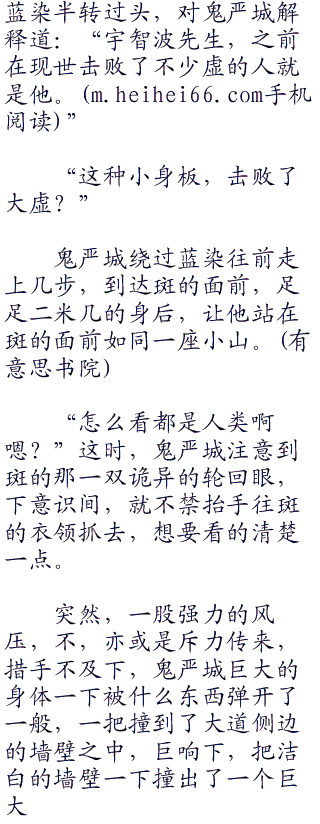 蓝染半转过头，对鬼严城解
释道：“宇智波先生，之前
在现世击败了不少虚的人就
是他。(m.heihei66.com手机
阅读)”
“这种小身板，击败了
大虚？”
鬼严城绕过蓝染往前走
上几步，到达斑的面前，足
足二米几的身后，让他站在
斑的面前如同一座小山。(有
意思书院)
“怎么看都是人类啊
嗯？”这时，鬼严城注意到
斑的那一双诡异的轮回眼，
下意识间，就不禁抬手往斑
的衣领抓去，想要看的清楚
一点。
突然，一股强力的风
压，不，亦或是斥力传来，
措手不及下，鬼严城巨大的
身体一下被什么东西弹开了
一般，一把撞到了大道侧边
的墙壁之中，巨响下，把洁
白的墙壁一下撞出了一个巨
大